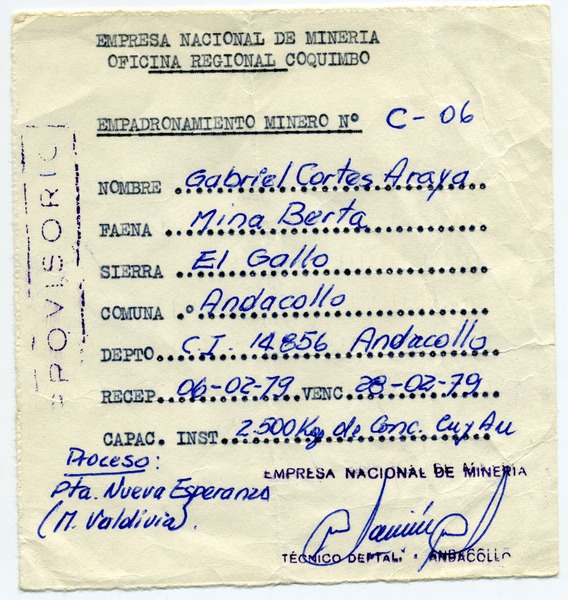 EMPRESA NACIONAL DE MINERIA
OFICINA REGIONAL COQUIMBO
EMPADRONAMIENTO MINERO Nº C-06
NOMBRE Gabriel Cortes Araya
FAENA Mina Berta
SIERRA El Gallo
COMUNA Andacollo
DEPTO. C.I. 14856 Andacollo
RECEP. 06-02-79 VENC 28-02-79
CAPAC. INST. 2.500 Kg de Conc. Cu y Au
Proceso:
Pta. Nueva Esperanza
(M. Valdivia).
PROVISORIO
EMPRESA NACIONAL DE MINERIA
TÉCNICO DEPTAL. ANDACOLLO